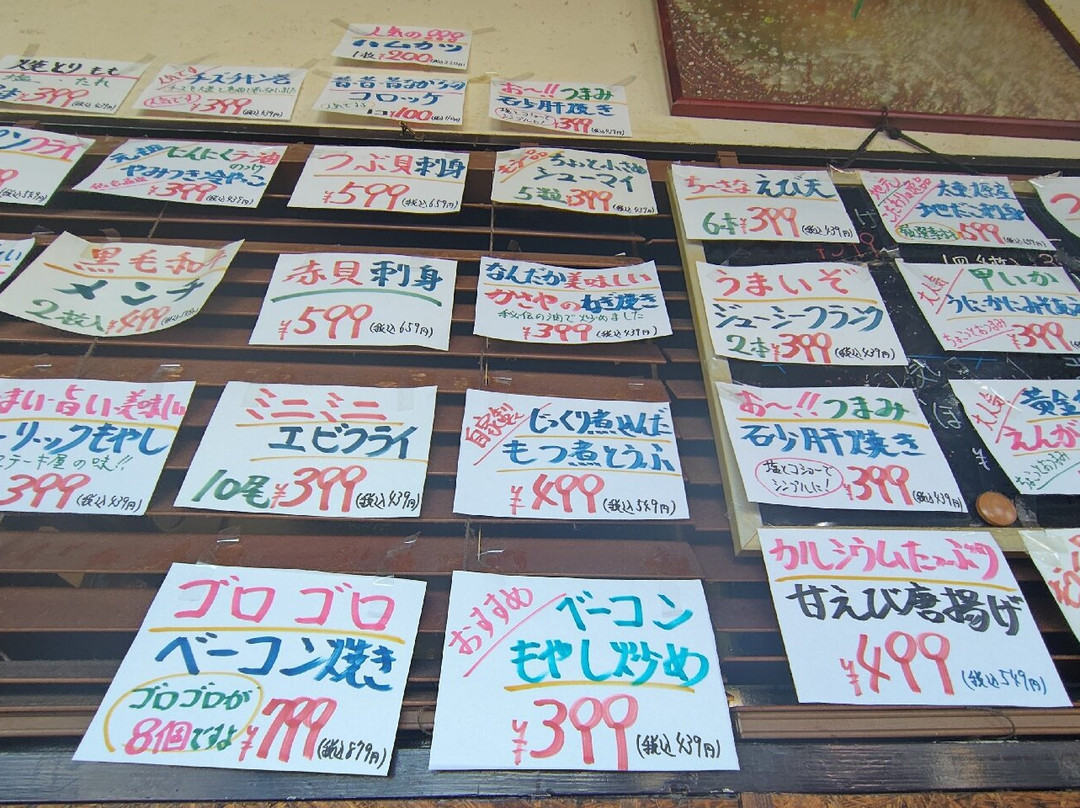 人気の
ハムカツ
1枚¥200
焼とりもも
塩 たれ
¥399
チーズチキン巻
人気です!
¥399
昔昔昔ながらの
コロッケ
1コ¥100
お〜!!つまみ
砂肝焼き
¥399(税込439円)
ンフライ
にんにく
やみつき冷やっこ
¥399(税込439円)
つぶ貝刺身
¥599(税込659円)
ちょっと小さめ
シューマイ
5粒¥399(税込439円)
ちーさなえび天
6本¥399(税込439円)
地だこ刺身
黒毛和牛
メンチ
2枚入¥499
赤貝刺身
¥599(税込659円)
なんだか美味しい
かさやのねぎ焼き
秘伝の油で炒めました
¥399(税込439円)
うまいぞ
ジューシーフランク
2本¥399(税込439円)
大人気!
甲いか
ちょこっとおつまみ
¥399
まい旨い美味い
ーリックもやし
ステーキ屋の味!!
399(税込439円)
ミニミニ
エビフライ
10尾¥399(税込439円)
自家製
じっくり煮込んだ
もつ煮とうふ
¥499(税込549円)
お〜!!つまみ
砂肝焼き
塩とコショーで
シンプルに!
¥399(税込439円)
大人気!
黄金
えんが
ゴロゴロ
ベーコン焼き
ゴロゴロが
8個ですよ
¥799(税込879円)
おすすめ
ベーコン
もやし炒め
¥399(税込439円)
カルシウムたーぷり
甘えび唐揚げ
¥499(税込549円)